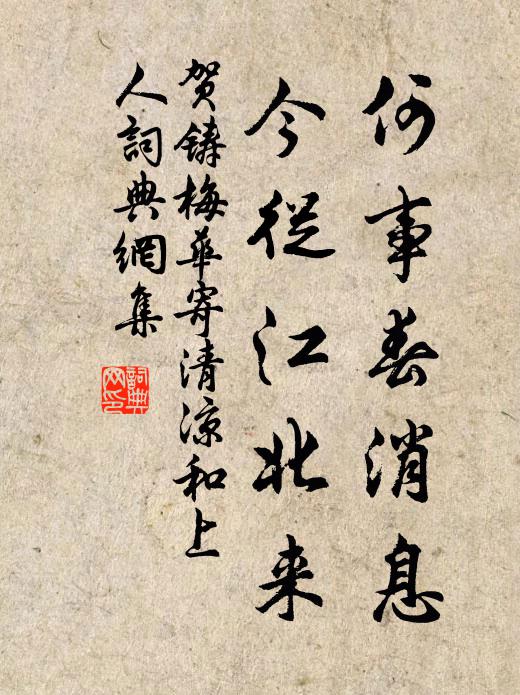 何事春消息
今從江北来
贺鑄梅華寄清涼和上
人詞典網集
詞典
网印